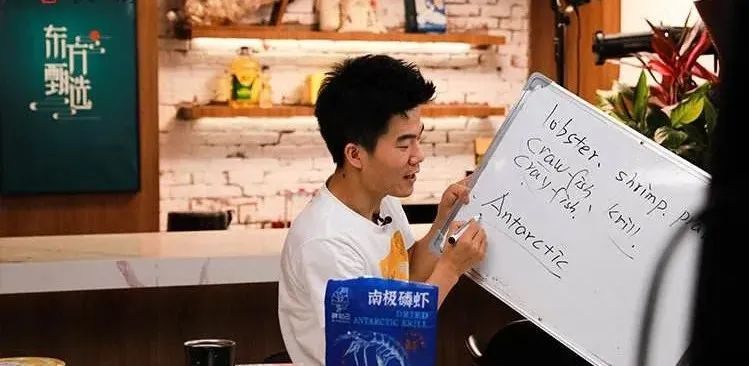 东方
甄选
lobster、shrimp.
craw-fish、krill.
cray-fish.
Antarctic
南极磷虾
DRIED
ANTARCTIC KRILL